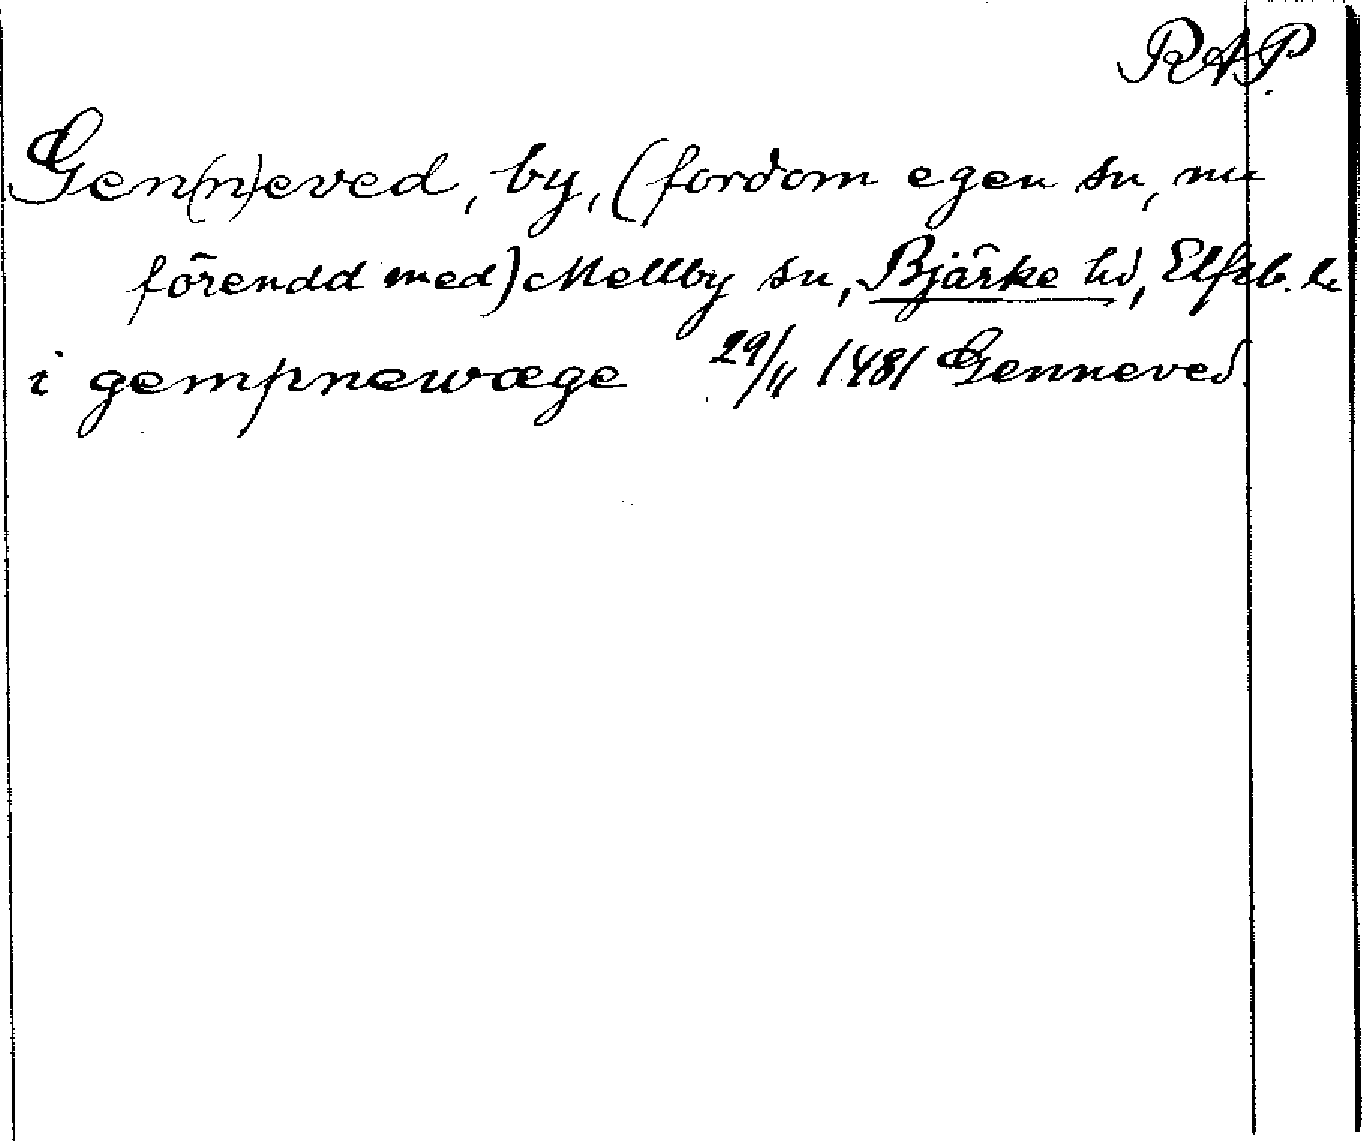 RAP.
Gen(n)eved, by, (fordom egen sn, nu
förendd med) Mellby sn, Bjärke hd, Elfsb. l.
i gempnewæge 29/11 1481 Genneved.